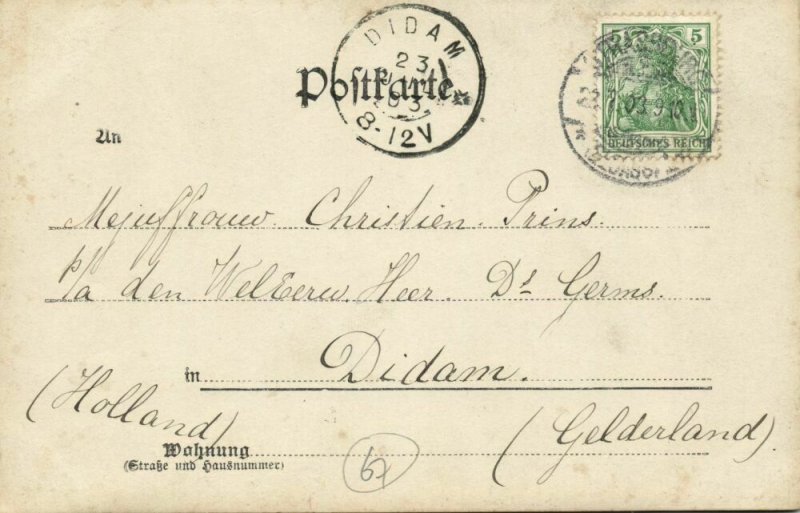 DIDAM
23
03
8-12V
Postkarte
5
DEUTSCHES REICH
An
Mejuffrouw. Christien. Prins.
p/a den WelEerw. Heer. Ds Germs.
in Didam.
(Holland) (Gelderland)
Wohnung
(Straße und Hausnummer)
67